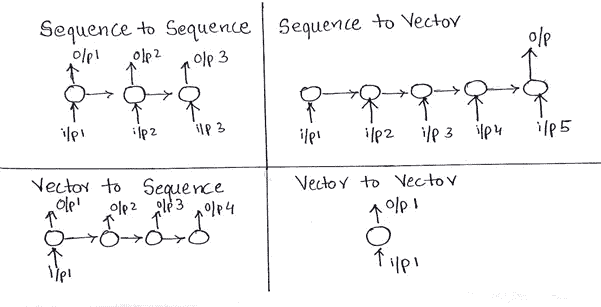 Sequence to Sequence
o/p1 o/p2 o/p3
i/p1 i/p2 i/p3
Sequence to Vector
o/p
i/p1 i/p2 i/p3 i/p4 i/p5
Vector to Sequence
o/p1 o/p2 o/p3 o/p4
i/p1
Vector to Vector
o/p1
i/p1